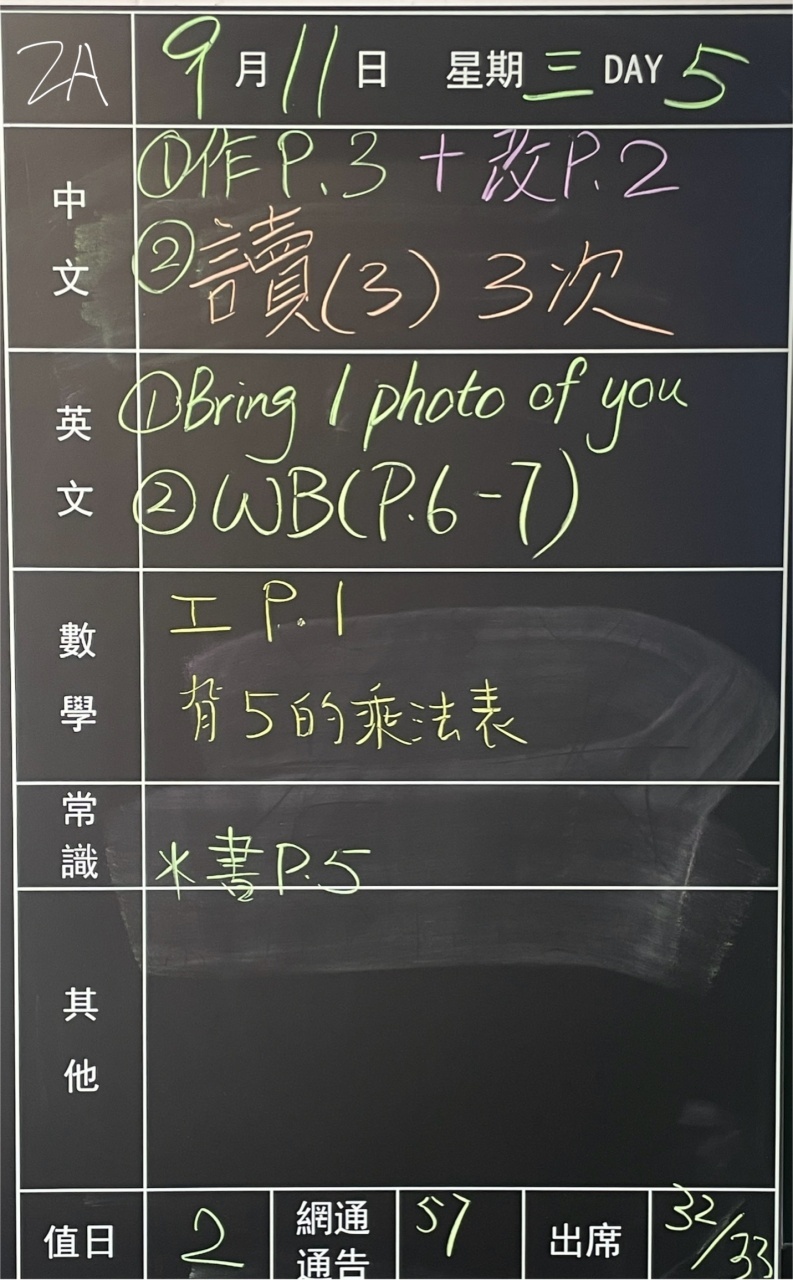 2A 9月11日 星期三 DAY 5
中文 ①作P.3 + 改P.2
②讀(3) 3次
英文 ①Bring 1 photo of you
②WB(P.6-7)
數學 工 P.1
背5的乘法表
常識 *書P.5
其他
值日 2 網通通告 57 出席 32/33